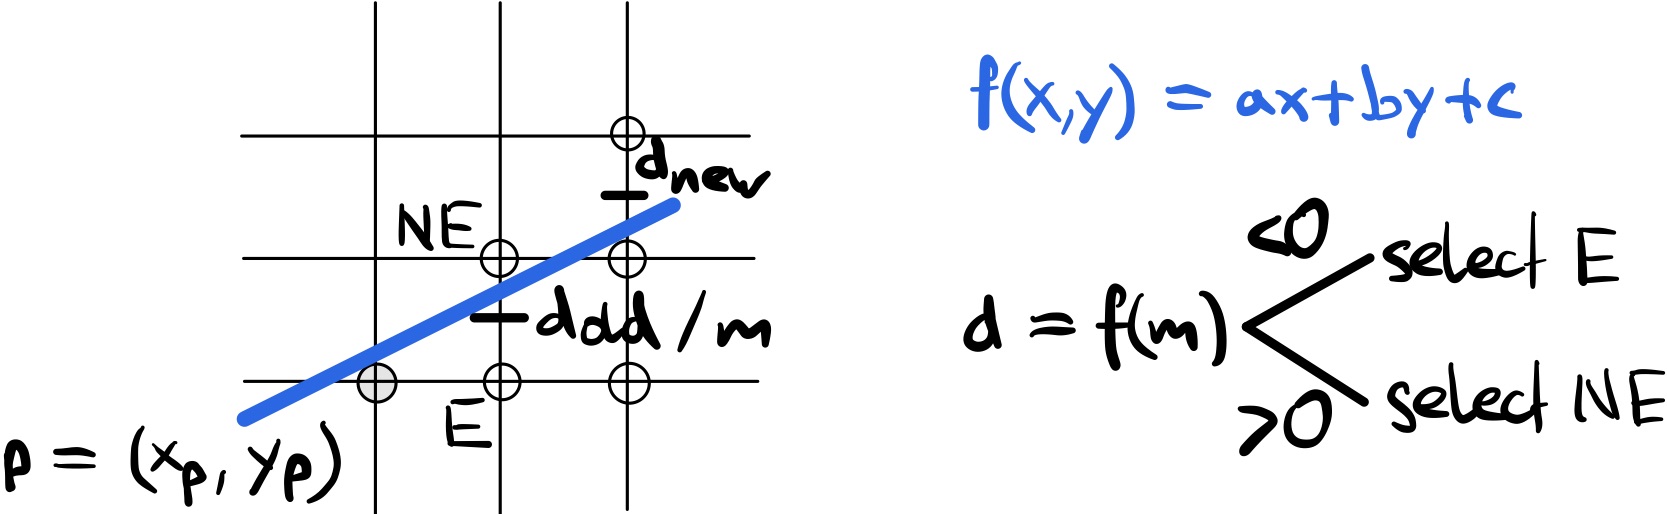 d new
NE
d old / m
E
p = (xp, yp)
f(x,y) = ax+by+c
<0
select E
d = f(m)
>0
select NE